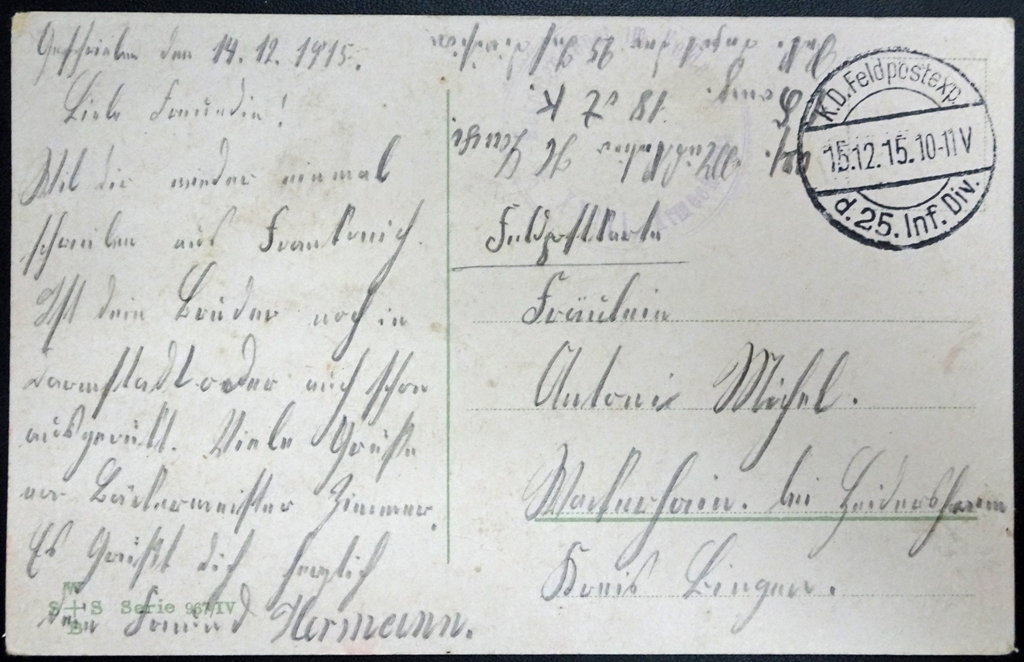 Geschrieben den 14.12.1915.
Liebe Freundin!
Wil dir wieder einmal
schreiben aus Frankreich.
Ist dein Bruder noch in
Darmstadt oder auch schon
ausgerückt. Viele Grüße
an Bäckermeister Zimmer.
Es Grüßt dich herzlich
dein Freund Hermann.
W
S S Serie 967/IV
B
25
18
K.D. Feldpostexp.
15.12.15.10-11V
d. 25. Inf. Div.
Feldpostkarte
Fräulein
Antonie Michel.
Wackernheim. bei Heidesheim
Kreis Bingen.